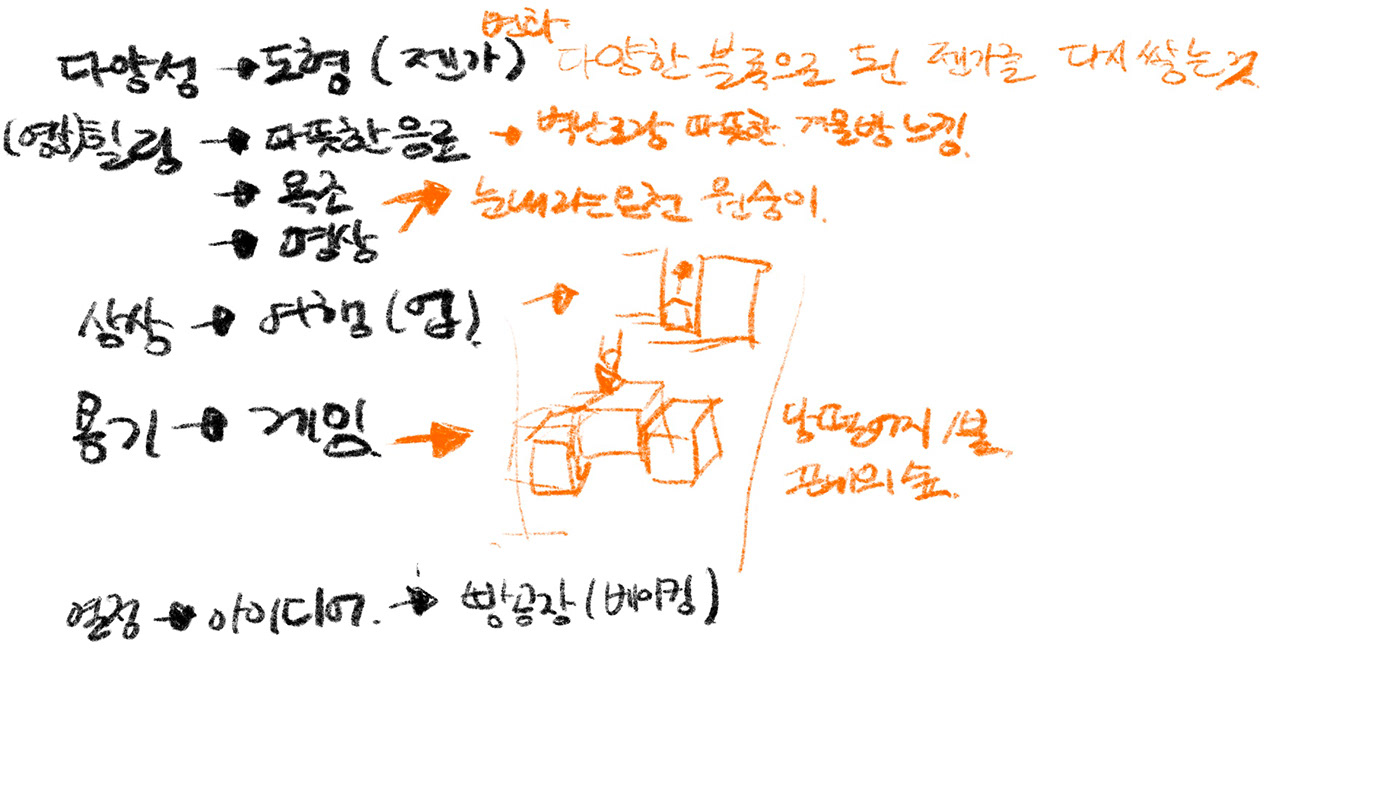 변화
다양성 → 도형 (젠가) 다양한 블록으로 된 젠가를 다시 쌓는 것
힐링 → 따뜻한 음료 → 벽난로랑 따뜻한 겨울방 느낌.
→ 욕조 → 눈내리는 온천 원숭이.
→ 명상
상상 → 여행 (업) →
용기 → 게임 →
낭떠러지 / 불
열정 → 아이디어. → 빵공장 (베이킹)